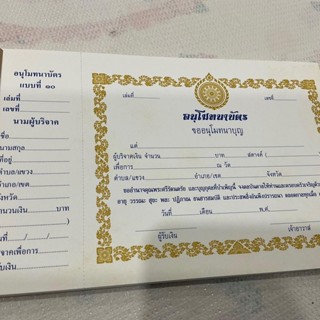 อนุโมทนาบัตร
แบบที่ ๑๐
เล่มที่
เลขที่
นามผู้บริจาค
ชื่อ
นามสกุล
ที่อยู่
ตำบล/แขวง
อำเภอ/เขต
จังหวัด
จำนวนเงิน บาท
วันที่ / /
เพื่อการ
รับเงิน
เล่มที่ เลขที่
อนุโมทนาบัตร
ขออนุโมทนาบุญ
แด่
ผู้บริจาคเงิน จำนวน บาท สตางค์ (
เพื่อการ ณ วัด
ตำบล/แขวง อำเภอ/เขต จังหวัด
ขออำนาจคุณพระศรีรัตนตรัย และบุญกุศลที่บำเพ็ญนี้
อายุ วรรณะ สุขะ พละ ปฏิภาณ ธนสารสมบัติ
วันที่ เดือน พ.ศ.
ผู้รับเงิน เจ้าอาวาส